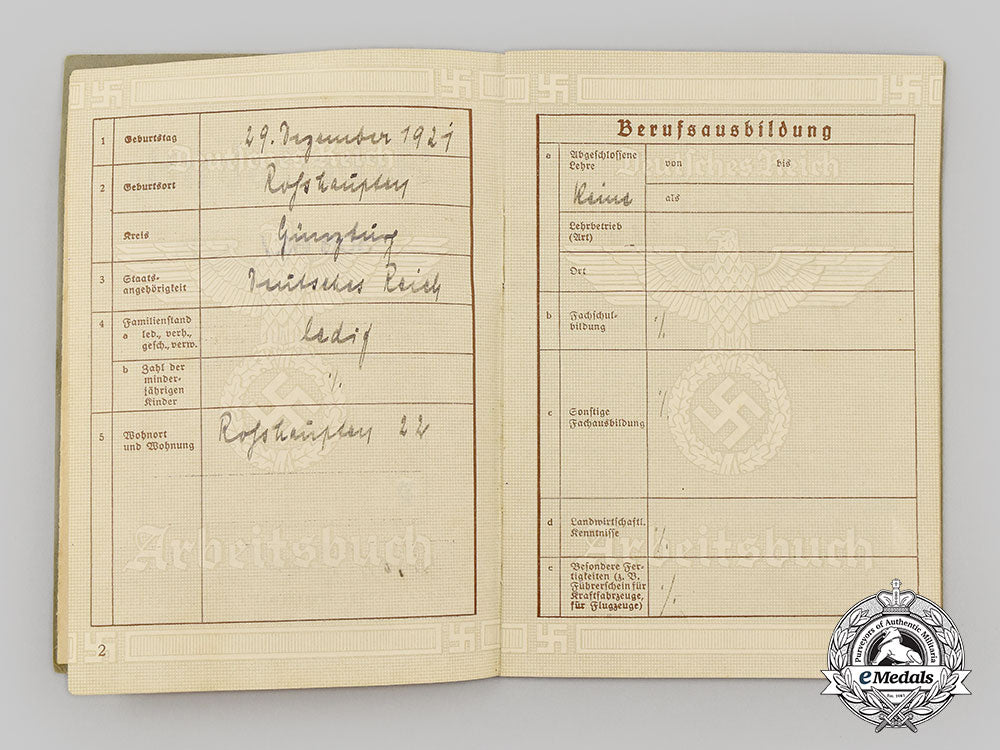 1 Geburtstag 29. Dezember 1921
2 Geburtsort Roßhaupten
Kreis Günzburg
3 Staats-
angehörigkeit Deutsches Reich
4 Familienstand
a led., verh.,
gesch., verw. ledig
b Zahl der
minder-
jährigen
Kinder ·/.
5 Wohnort
und Wohnung Roßhaupten 22
Deutsches Reich
Arbeitsbuch
2
Berufsausbildung
a Abgeschlossene
Lehre von bis
Keine als
Lehrbetrieb
(Art)
Ort
b Fachschul-
bildung ·/.
c Sonstige
Fachausbildung ·/.
d Landwirtschaftl.
Kenntnisse ·/.
e Besondere Fer-
tigkeiten (z. B.
Führerschein für
Kraftfahrzeuge,
für Flugzeuge) ·/.
Deutsches Reich
Arbeitsbuch
Purveyors of Authentic Militaria
eMedals